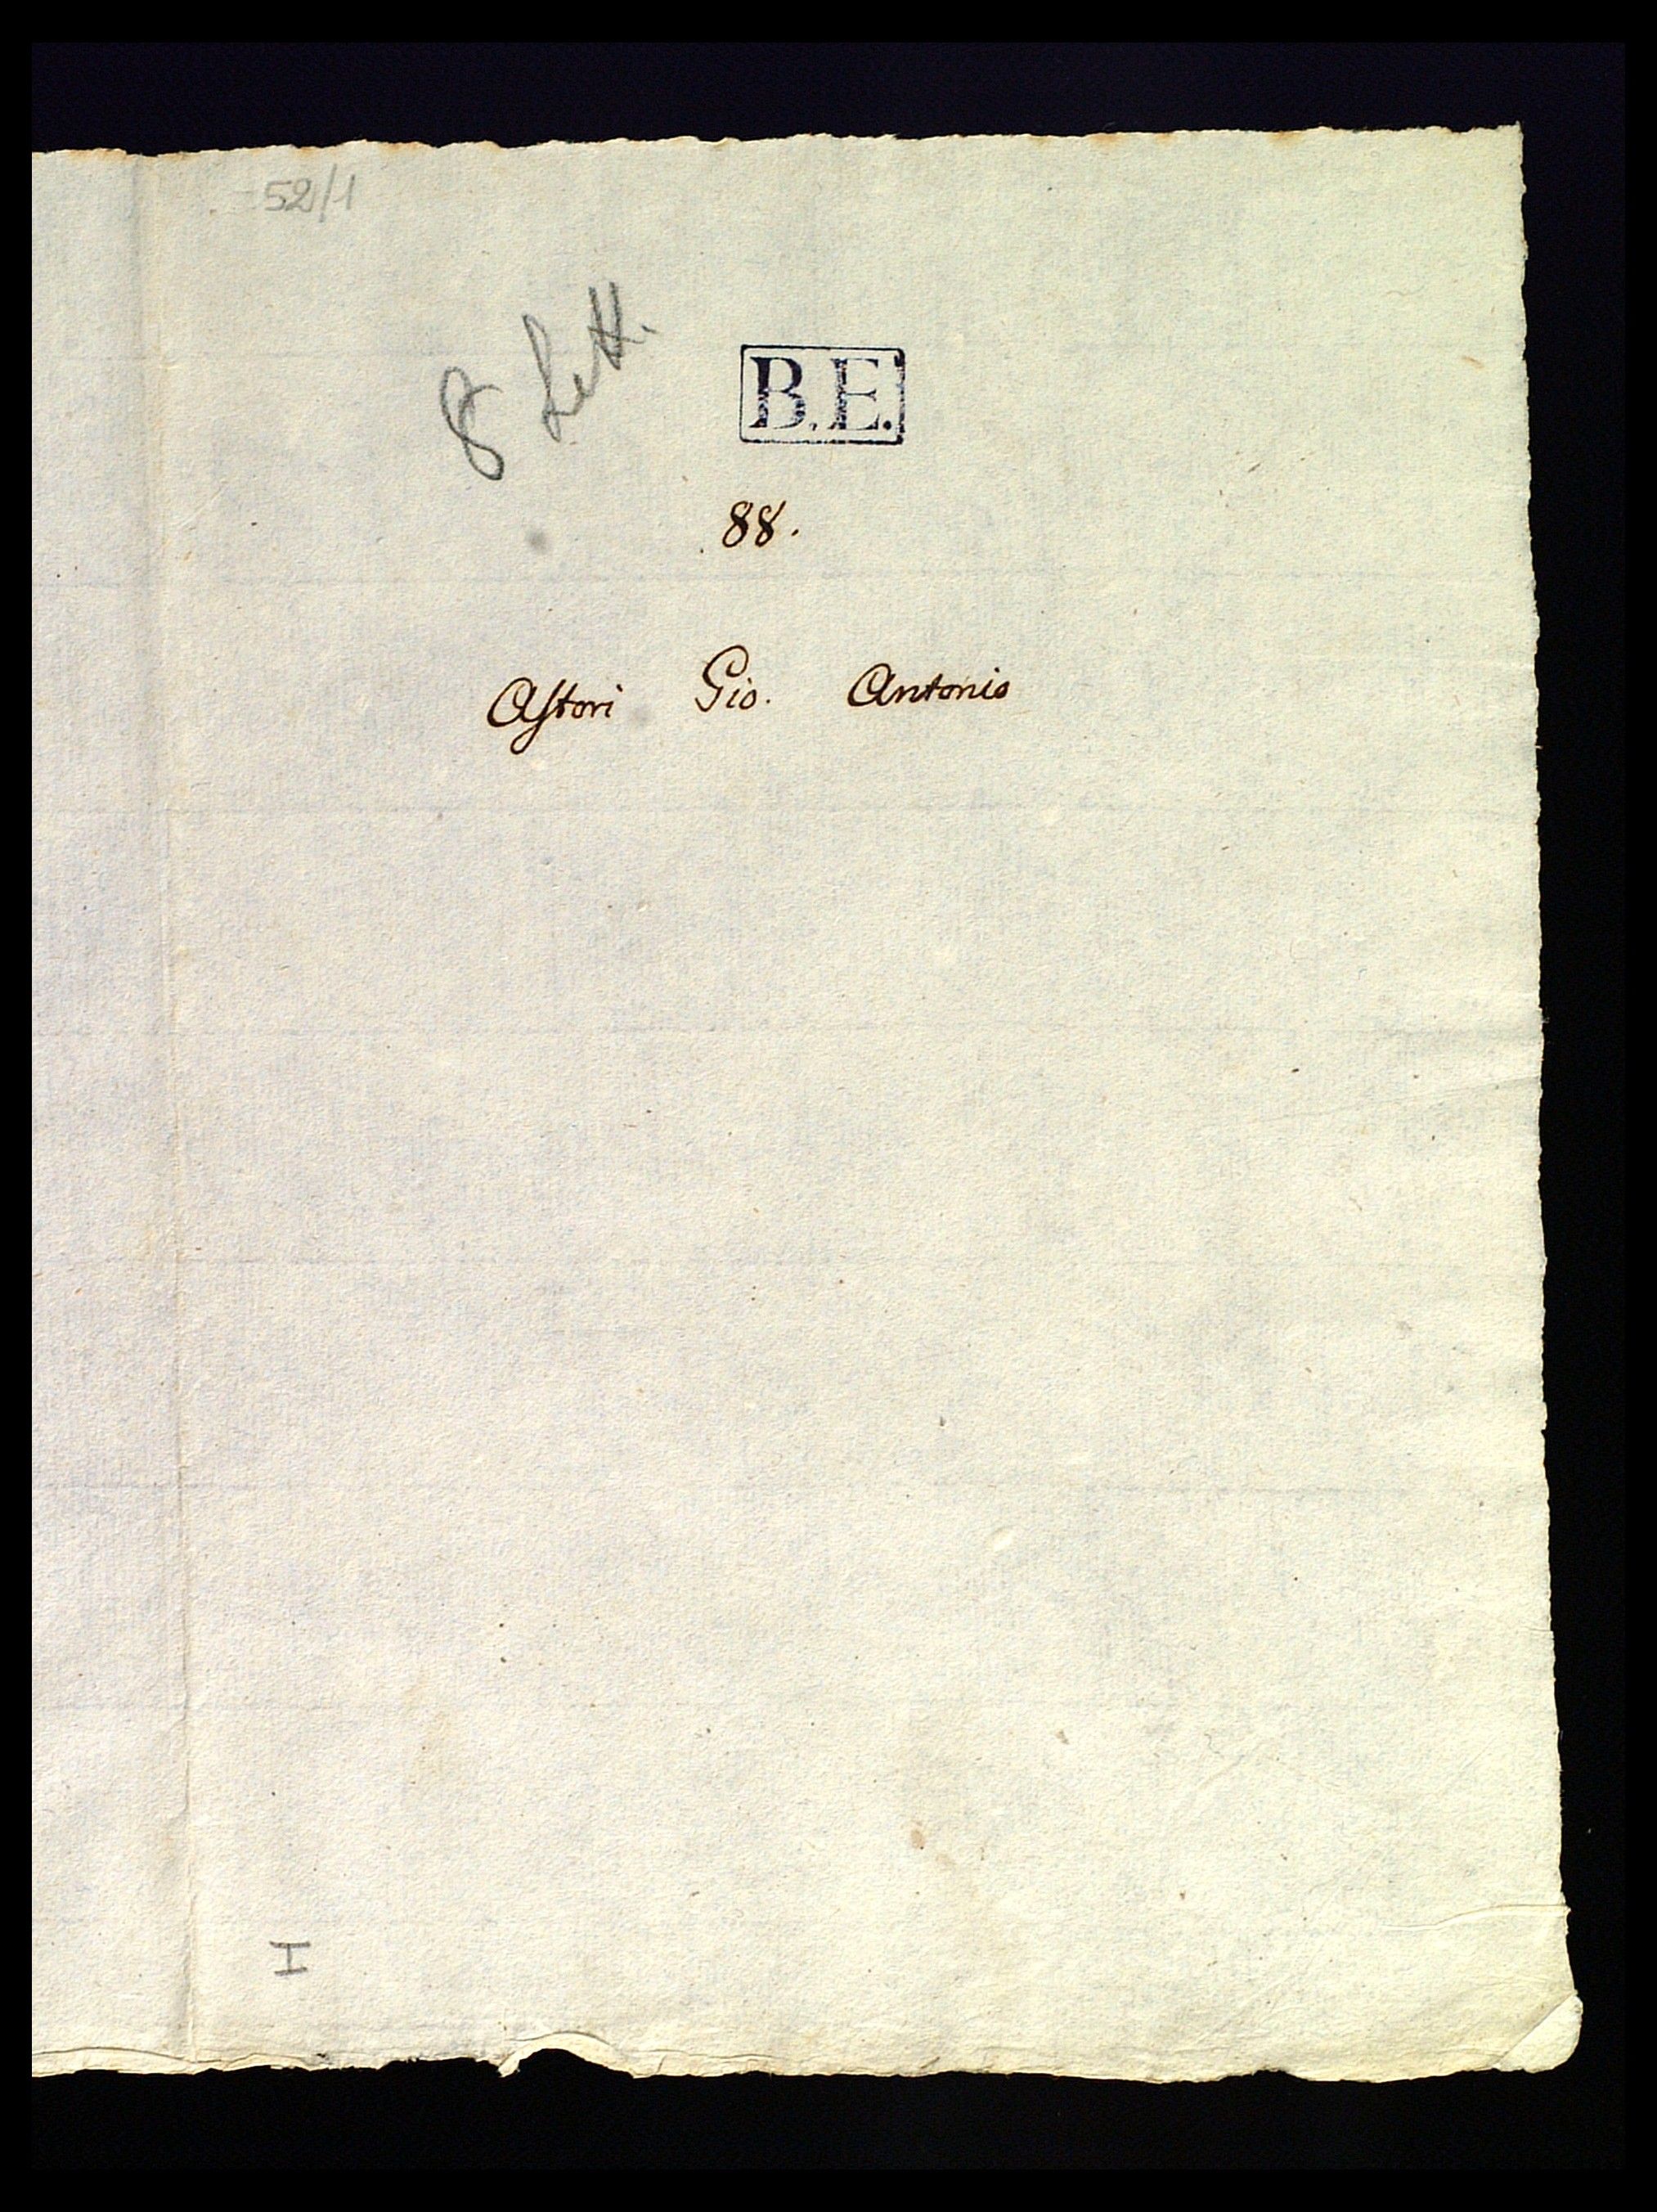 52/1
8 Lett.
B.E.
88.
Astori Gio. Antonio
I